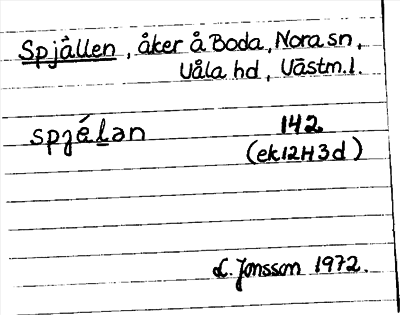 Spjällen, åker å Boda, Nora sn,
Våla hd, Västm.l.
spjé̱lən 142
(ek12H3d)
L. Jonsson 1972.